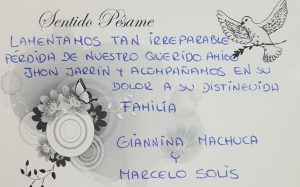 Sentido Pésame
LAMENTAMOS TAN IRREPARABLE
PÉRDIDA DE NUESTRO QUERIDO AMIGO
JHON JARRÍN Y ACOMPAÑAMOS EN SU
DOLOR A SU DISTINGUIDA
FAMILIA
GIANNINA MACHUCA
Y
MARCELO SOLIS